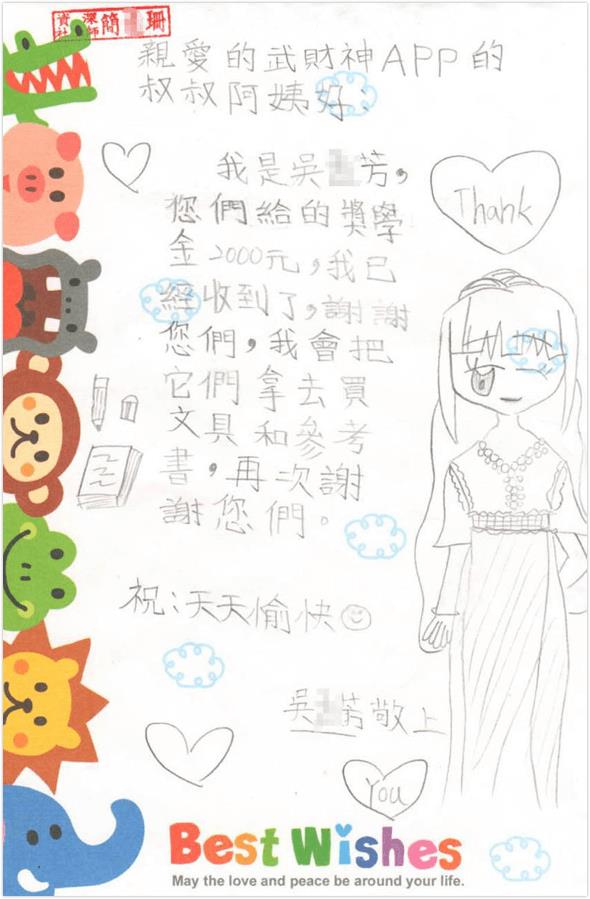 資深
社師
簡 珊
親愛的武財神APP的
叔叔阿姨好：
Thank
我是吳 芳，
您們給的獎學
金2000元，我已
經收到了，謝謝
您們，我會把
它們拿去買
文具和參考
書，再次謝
謝您們。
祝：天天愉快
吳 芳敬上
You
Best Wishes
May the love and peace be around your life.